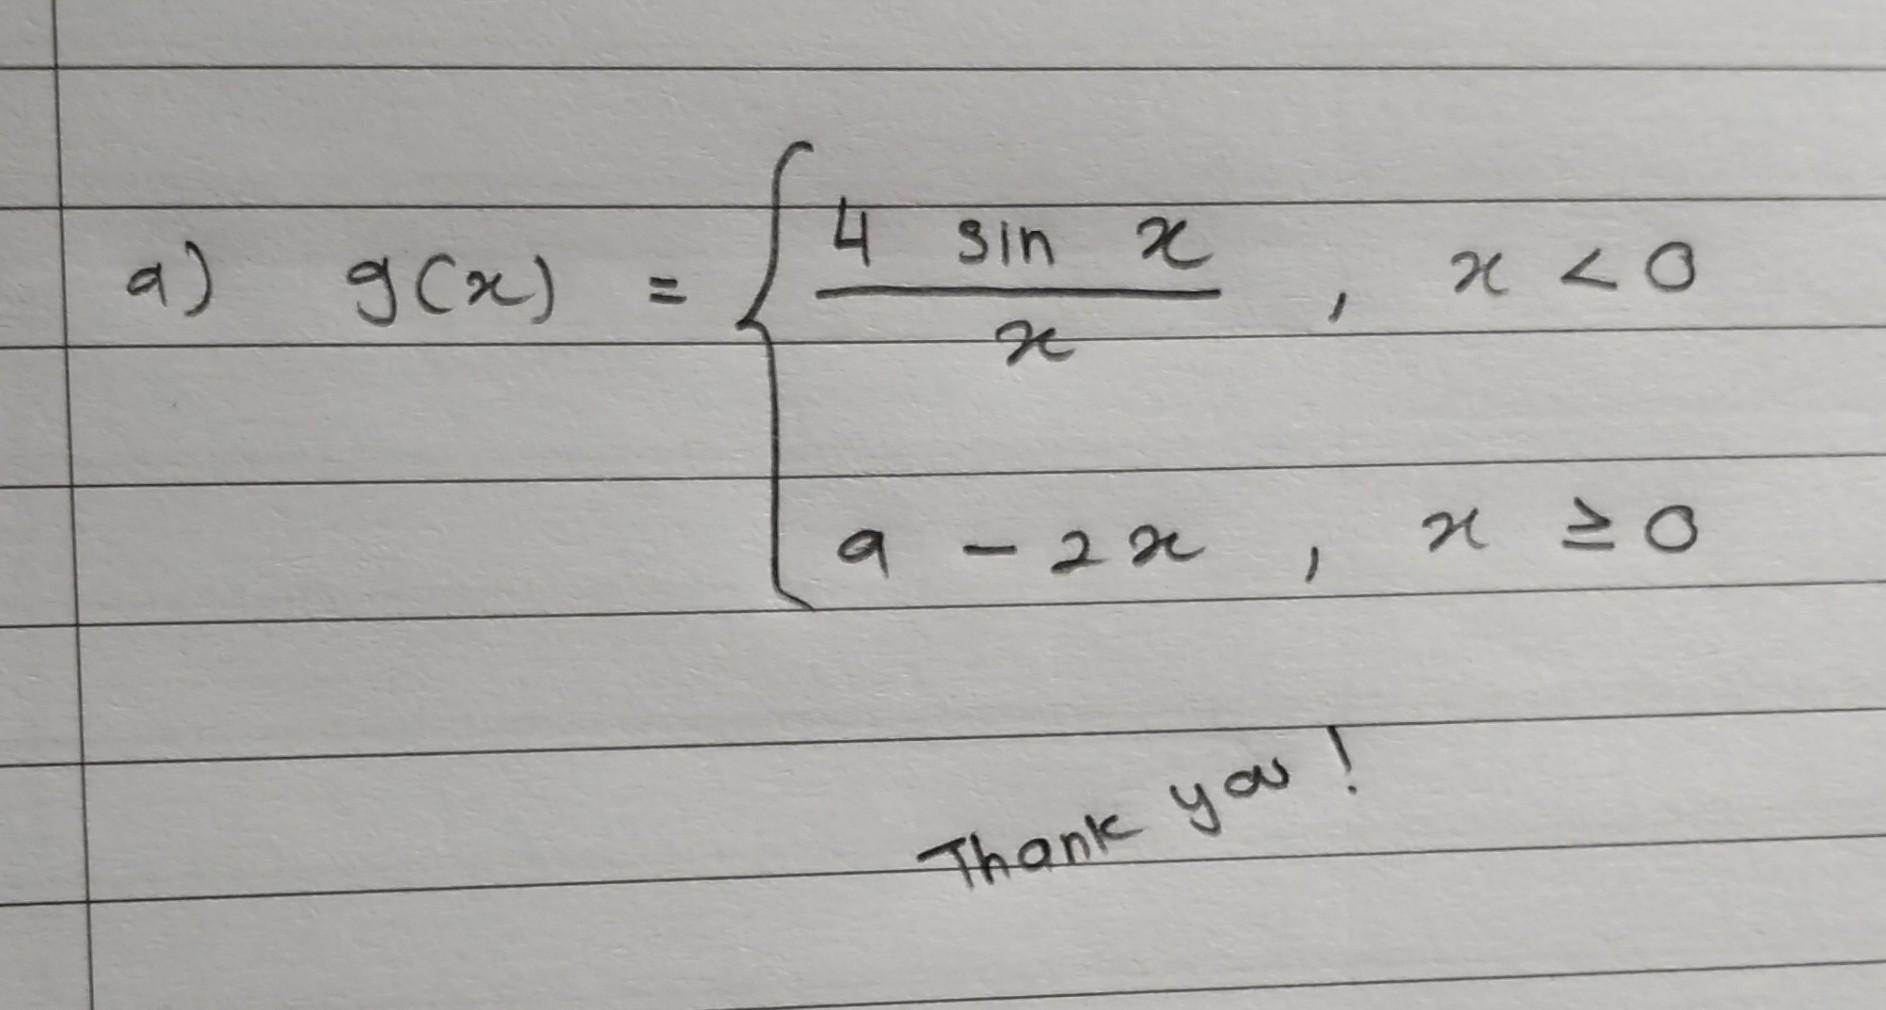 a) g(x) = { 4 sin x / x , x < 0
a - 2x , x ≥ 0
Thank you!